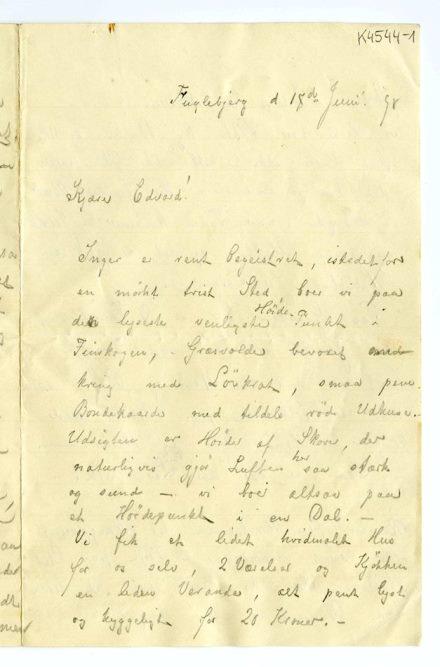 K4544-1
Fuglebjerg d 18de Juni 98
Kjære Edvard!
Inger er rent begeistret, istedetfor
en mørkt trist Sted boer vi paa
den lyseste venligste Høide-Punkt i
Finskogen, Græsvolde bevoxet
kring med Løvkrat, smaa pene
Bondegaarde med tildels røde Udhuse.
Udsigten er Høider af Skove, der
naturligvis gjør Luften her saa stærk
og sund — vi boer altsaa paa
et Høidepunkt i en Dal. —
Vi fik et lidet hvidmalet Hus
for os selv, 2 Værelser og Kjøkken
en liden Veranda, alt pent lyst
og hyggeligt for 20 Kroner. —